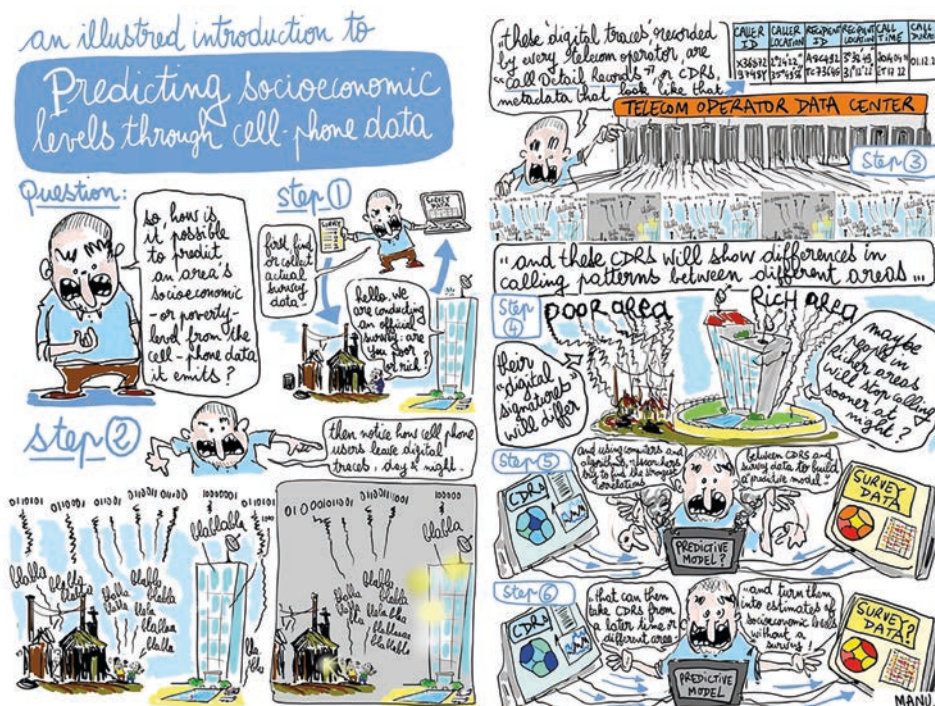 an illustred introduction to
Predicting socioeconomic
levels through cell-phone data
Question:
so how is
it possible
to predict
an area's
socioeconomic
-or poverty-
level from the
cell-phone data
it emits?
Step 1
SURVEY
SURVEY
DATA
first, find
or collect
actual
survey
data.
hello, we
are conducting
an official
survey: are
you poor
or rich?
Step 2
then notice how cell phone
users leave digital
traces, day & night.
blabla
blabla
blablabla
blabla
"these 'digital traces' recorded
by every telecom operator, are
"Call Detail Records", or CDRs,
metadata that look like that
CALLER ID
CALLER LOCATION
RECIPIENT ID
RECIPIENT LOCATION
CALL TIME
CALL
TELECOM OPERATOR DATA CENTER
Step 3
"and these CDRs will show differences in
calling patterns between different areas...
Step 4
POOR AREA
RICH AREA
their
"digital
signatures"
will differ
maybe
people in
Richer areas
will stop calling
sooner at
night?
Step 5
CDRs
and using computers and
algorithms, researchers
try to find the strongest
correlations
between CDRs and
survey data to build
a predictive model"
SURVEY
DATA
PREDICTIVE
MODEL?
Step 6
CDRs
"that can then
take CDRs from
a later time or
different area
"and turn them
into estimates of
socioeconomic levels
without a
survey!
SURVEY
DATA?
PREDICTIVE
MODEL
MANU